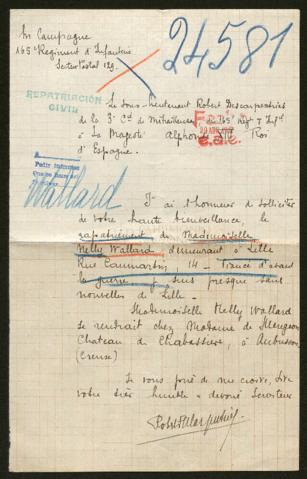 En Campagne
24581
165e Régiment d'Infanterie
Secteur Postal 129.
REPATRIACIÓN
CIVIL
le sous-lieutenant Robert
de la 3e Cie de Mitrailleuses du 165e Régt d'Infie
à Sa Majesté Alphonse XIII Roi
d'Espagne.
Wallard
J'ai l'honneur de solliciter
de votre haute bienveillance, le
rapatriement de Mademoiselle
Nelly Wallard demeurant à Lille
Rue Caumartin, 14 - France d'avant
la guerre, suis presque sans
nouvelles de Lille.
Mademoiselle Nelly Wallard
se rendrait chez Madame de
Chateau de Chabassière, à Aubusson
(Creuse)
Je vous prie de me croire, Sire
votre très humble & dévoué Serviteur